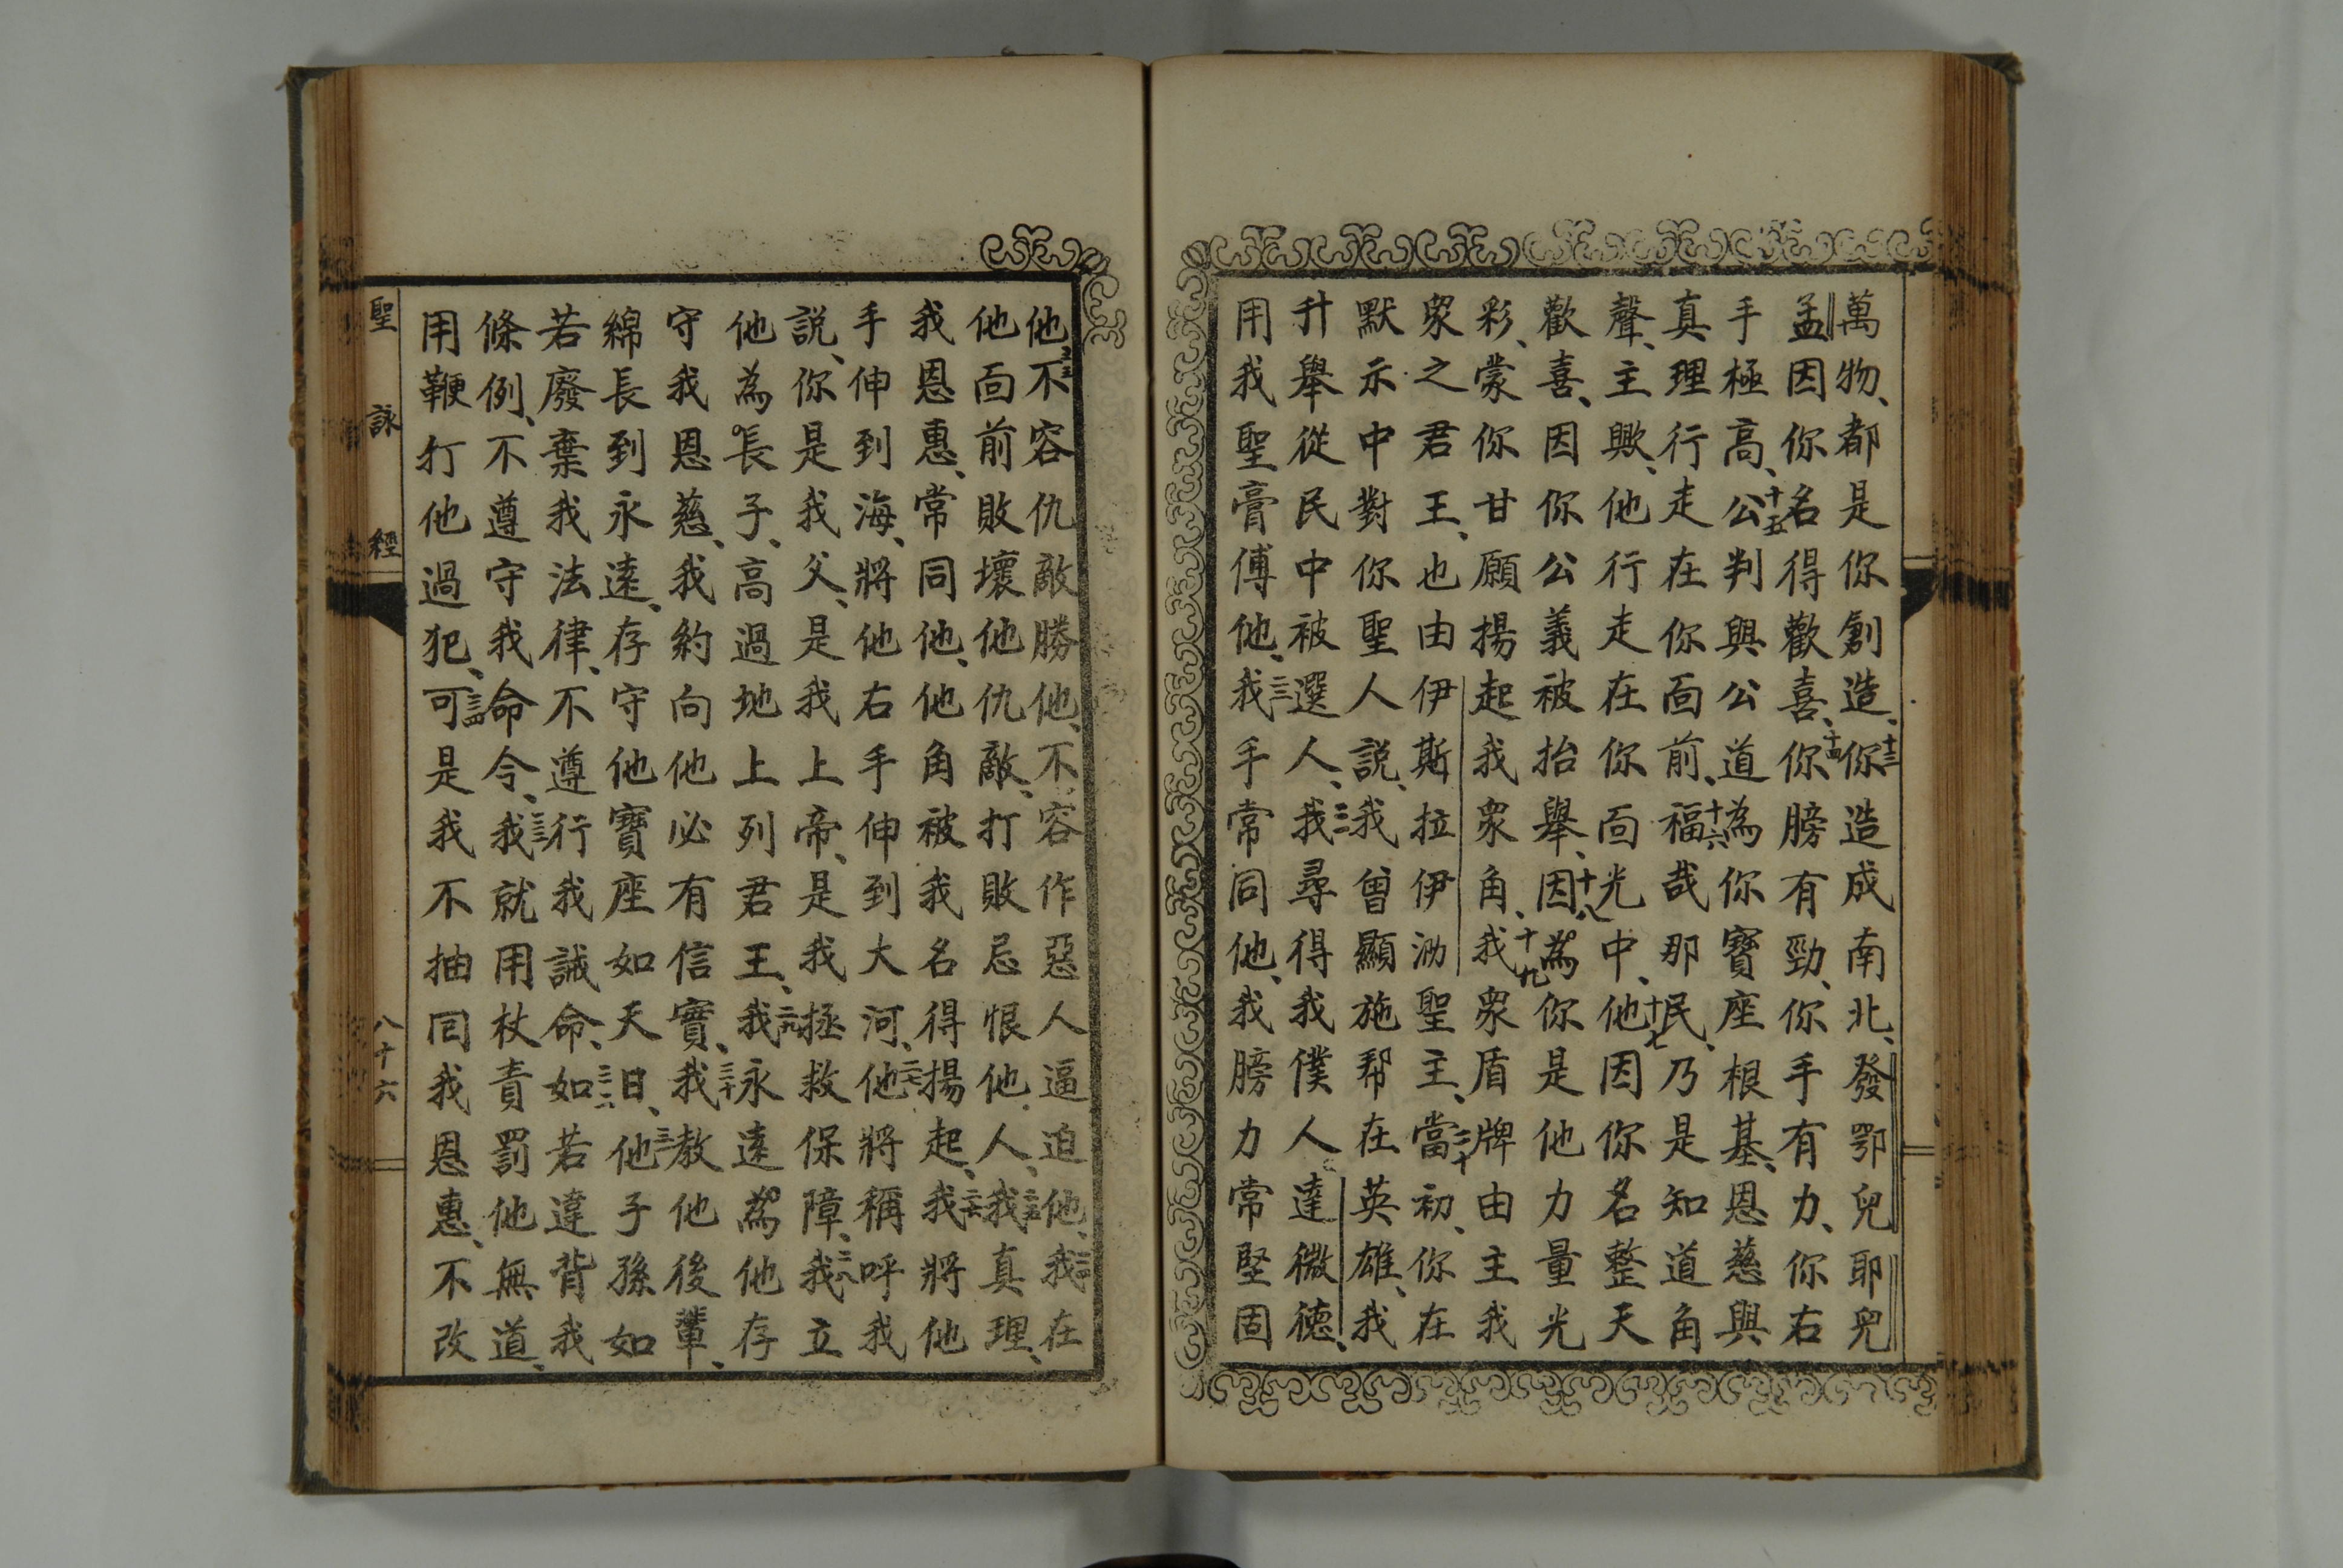 萬物、都是你創造、十三你造成南北、發鄂兒耶兒
孟因你名得歡喜、十四你膀有勁、你手有力、你右
手極高、十五公判與公道為你寶座根基、恩慈與
真理行走在你面前、十六福哉那民、乃是知道角
聲、主歟、他行走在你面光中、十七他因你名整天
歡喜、因你公義被抬舉、十八因為你是他力量光
彩、蒙你甘願揚起我衆角、十九我衆盾牌由主我
衆之君王、也由伊斯拉伊泐聖主、二十當初、你在
默示中對你聖人說、我曾顯施帮在英雄、我
升舉從民中被選人、二一我尋得我僕人達微德、
用我聖膏傅他、二二我手常同他、我膀力常堅固
他、二三不容仇敵勝他、不容作惡人逼迫他、二四我在
他面前敗壞他仇敵、打敗忌恨他人、二五我真理、
我恩惠、常同他、他角被我名得揚起、二六我將他
手伸到海、將他右手伸到大河、二七他將稱呼我
說、你是我父、是我上帝、是我拯救保障、二八我立
他為長子、高過地上列君王、二九我永遠為他存
守我恩慈、我約向他必有信實、三十我教他後輩、
綿長到永遠、存守他寶座如天日、三一他子孫如
若廢棄我法律、不遵行我誡命、三二如若違背我
條例、不遵守我命令、三三我就用杖責罰他無道、
用鞭打他過犯、三四可是我不抽囘我恩惠、不改
聖詠經
八十六